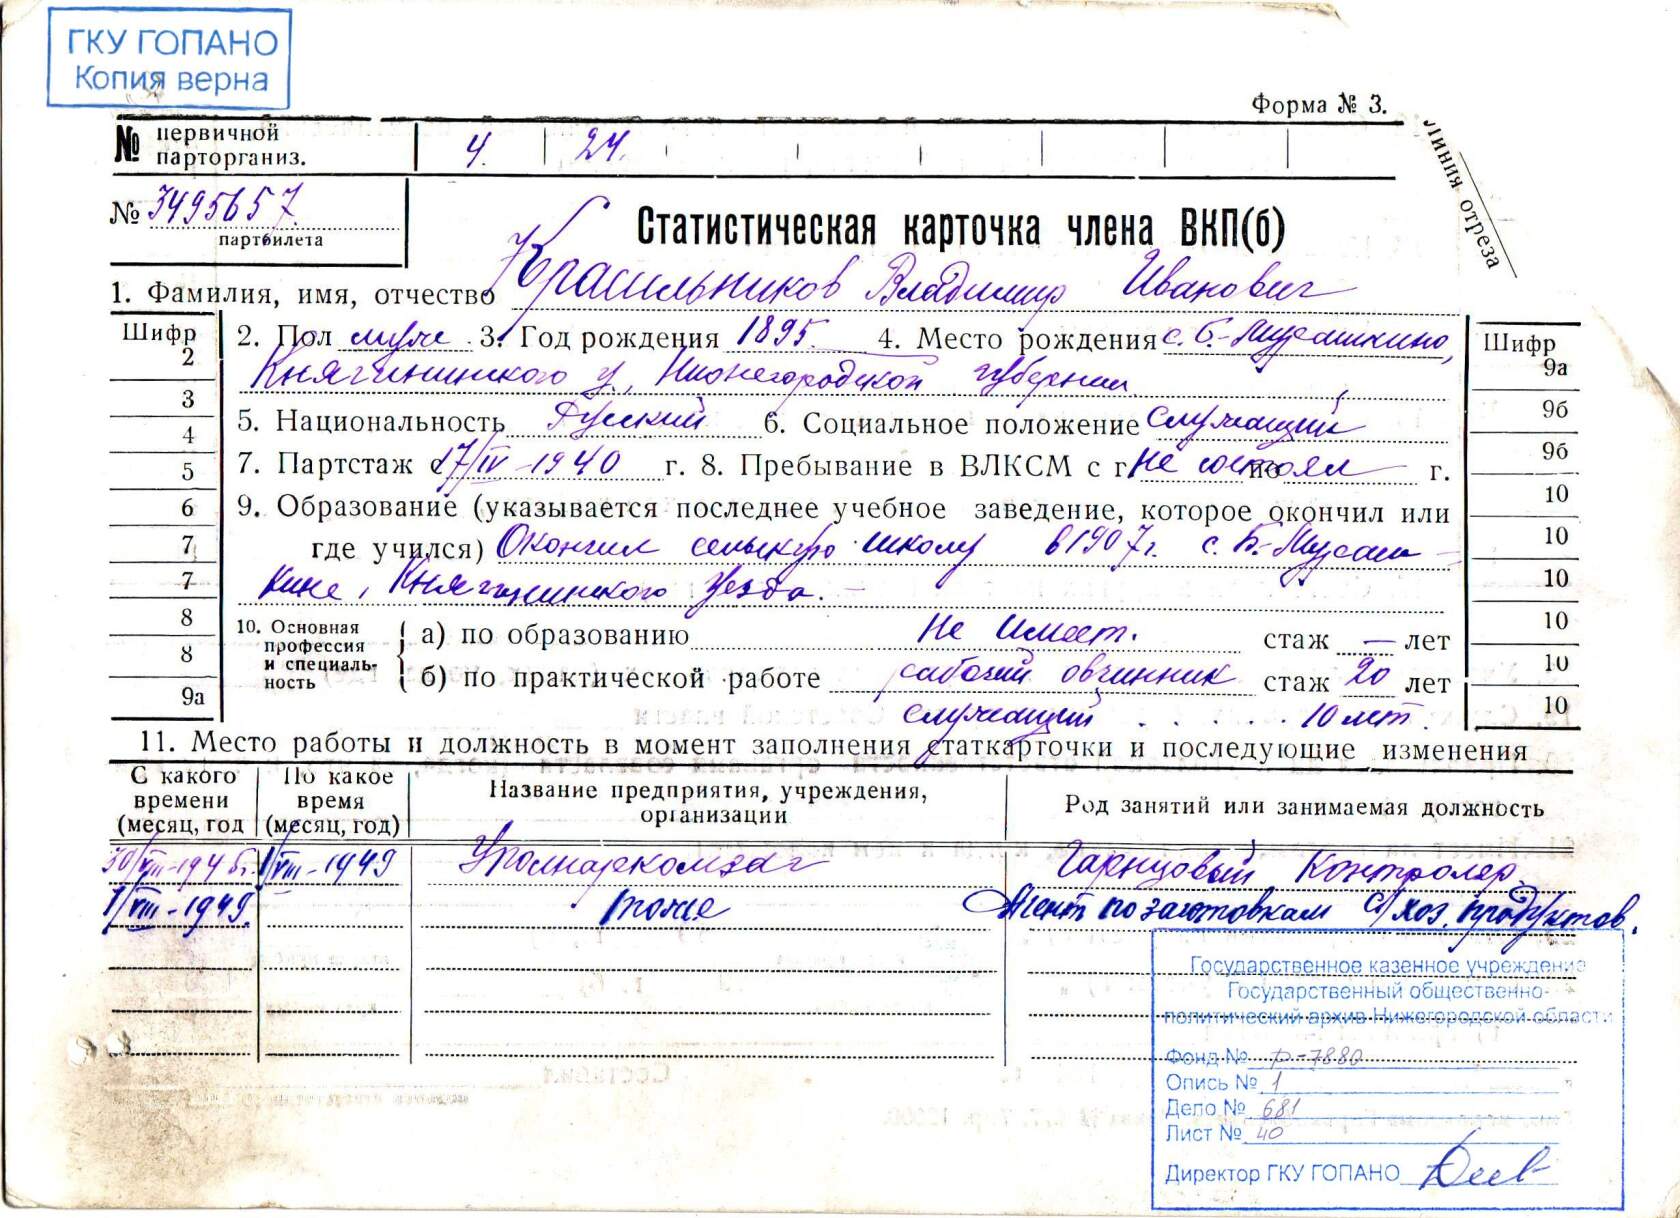 ГКУ ГОПАНО
Копия верна
Форма № 3.
Линия отреза
№ первичной парторганиз. 4. 24.
№ 3495657
партбилета
Статистическая карточка члена ВКП(б)
1. Фамилия, имя, отчество Красильников Владимир Иванович
Шифр
2
3
4
5
6
7
7
8
8
9а
2. Пол муж 3. Год рождения 1895. 4. Место рождения с. Б.-Мурашкино,
Княгининского у., Нижегородской губернии
5. Национальность Русский 6. Социальное положение служащий
7. Партстаж с 17/IV-1940 г. 8. Пребывание в ВЛКСМ с г. не состоял по г.
9. Образование (указывается последнее учебное заведение, которое окончил или
где учился) Окончил сельскую школу в 1907г. с. Б.-Мураш-
кине, Княгининского уезда. –
10. Основная профессия и специальность
а) по образованию Не имеет. стаж — лет
б) по практической работе рабочий овчинник стаж 20 лет
служащий . . . . . 10 лет.
Шифр
9а
9б
9б
10
10
10
10
10
10
11. Место работы и должность в момент заполнения статкарточки и последующие изменения
С какого времени (месяц, год
По какое время (месяц, год)
Название предприятия, учреждения, организации
Род занятий или занимаемая должность
30/VIII-1945г. 1/VIII-1949 Уполнаркомзаг Гарнцовый контролер
1/VIII-1949. тоже Агент по заготовкам с/хоз. продуктов.
Государственное казенное учреждение
Государственный общественно-
политический архив Нижегородской области
Фонд № р-7880
Опись № 1
Дело № 681
Лист № 40
Директор ГКУ ГОПАНО